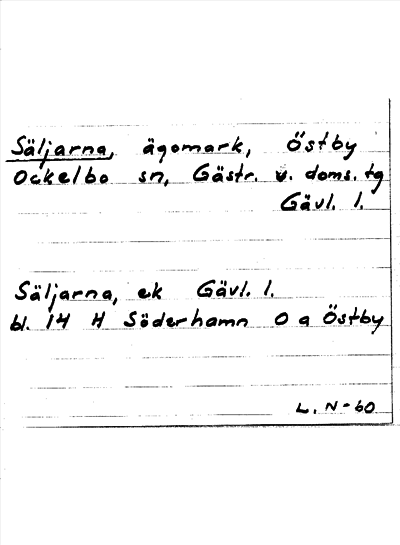 Säljarna, ägomark, Östby
Ockelbo sn, Gästr. v. doms. tg
Gävl. l.
Säljarna, ek Gävl. l.
bl. 14 H Söderhamn O a Östby
L. N-60